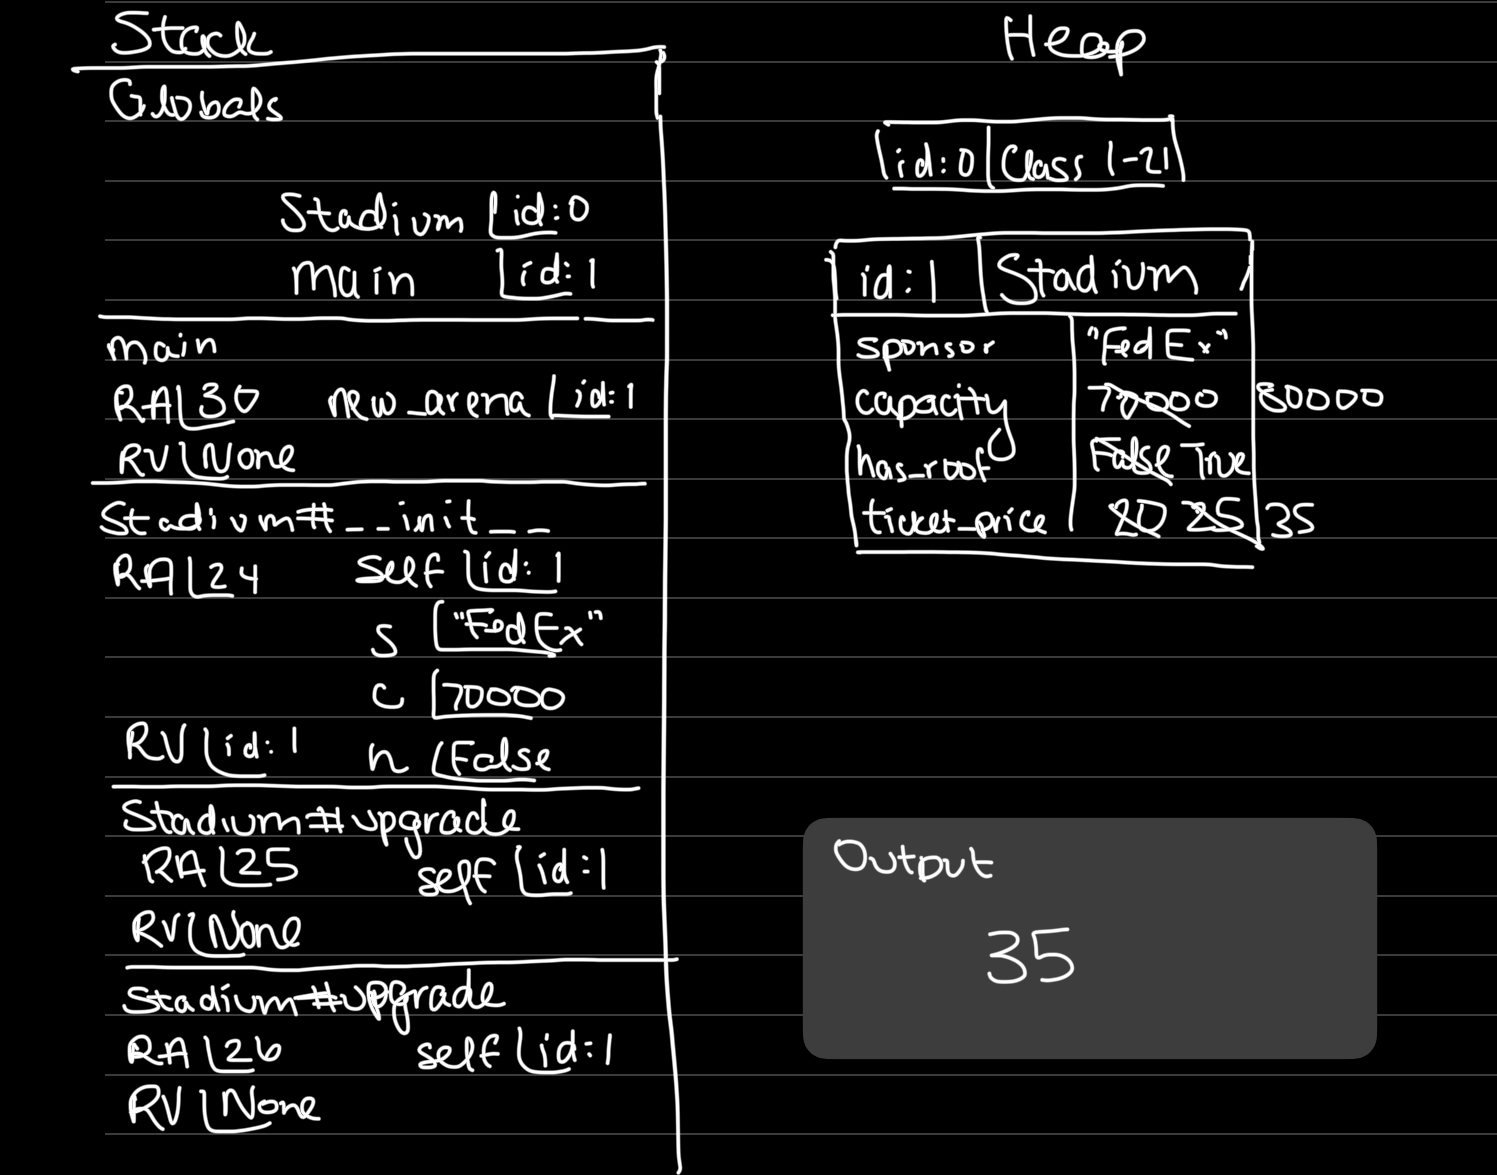 Stack
Globals
Stadium id:0
main id:1
main
RA 30 new_arena id:1
RV None
Stadium#__init__
RA 24 self id:1
s "FedEx"
c 70000
RV id:1 h False
Stadium#upgrade
RA 25 self id:1
RV None
Stadium#upgrade
RA 26 self id:1
RV None
Heap
id:0 Class 1-21
id:1 Stadium
sponsor "FedEx"
capacity 70000 80000
has_roof False True
ticket_price 20 25 35
Output
35